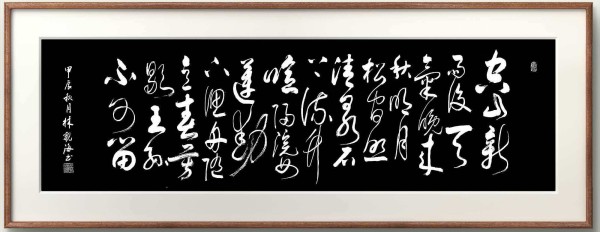 空山新
雨後天
氣晚来
秋明月
松間照
清泉石
上流竹
喧歸浣女
蓮動
下漁舟隨
意春芳
歇王孫
不可留
甲辰秋月林海书